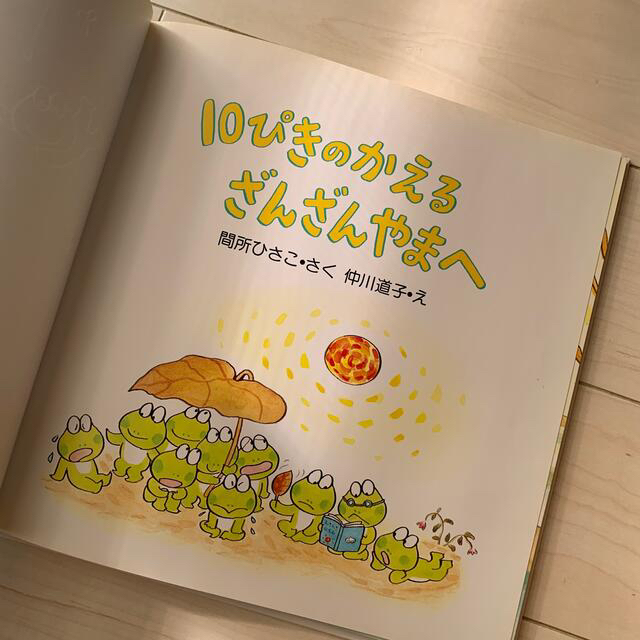 10ぴきのかえる
ざんざんやまへ
間所ひさこ・さく 仲川道子・え